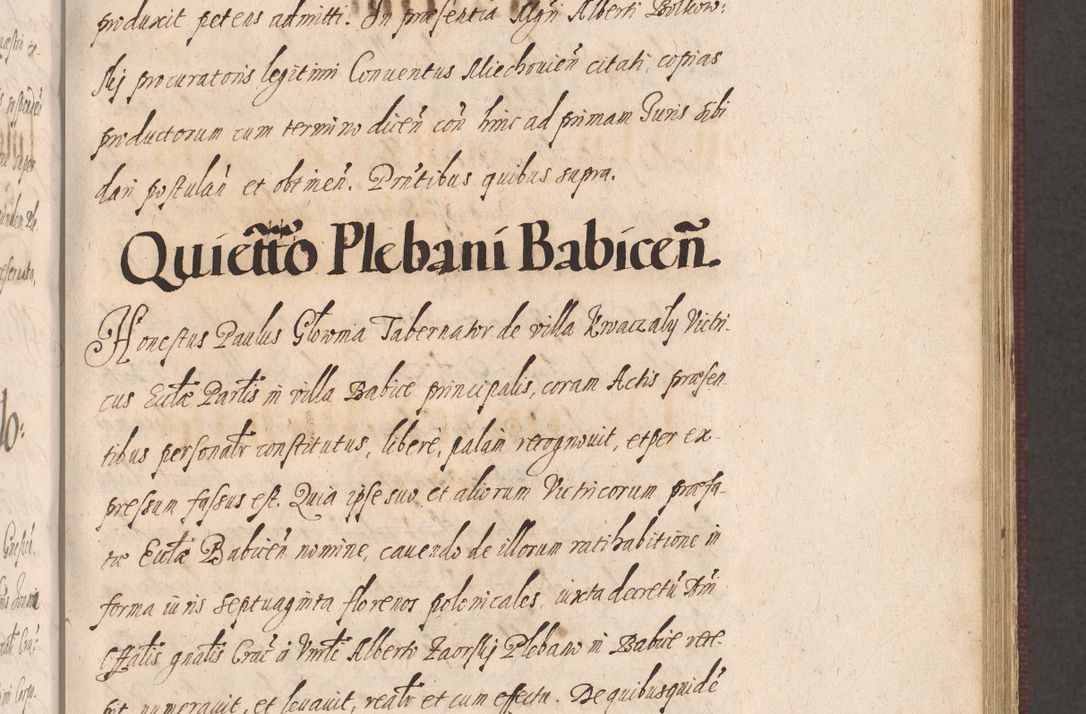 produxit petens admitti. In præsentia Mgri Alberti Bolkow:
skij procuratoris legitimi Conuentus Miechouien̄ citati, copias
productorum cum termino dicen̄ con̄ hinc ad primam Juris sibi
dari postulan̄ et obtinen̄. Prn̄tibus quibus supra.
Quiet̄t̄o Plebani Babicen̄.
Honestus Paulus Glownia Tabernator de villa Kwaczaly Victri-
cus Ecctæ Partis in villa Babice principalis, coram Actis præsen-
tibus personatr constitutus, libere, palam recognouit, et per ex-
pressum fassus est. Quia ipse suo et aliorum Victricorum præfa-
tæ Ecctæ Babicen̄ nomine, cauendo de illorum ratihabitione in
forma iuris septuaginta florenos polonicales, iuxta decretū Dn̄i
Offalis gnalis Crac̄ à Vnbli Alberto Zaorskij Plebano in Babice rece-
pit, numerauit, et leuauit, realr et cum effectu. De quibus quidē